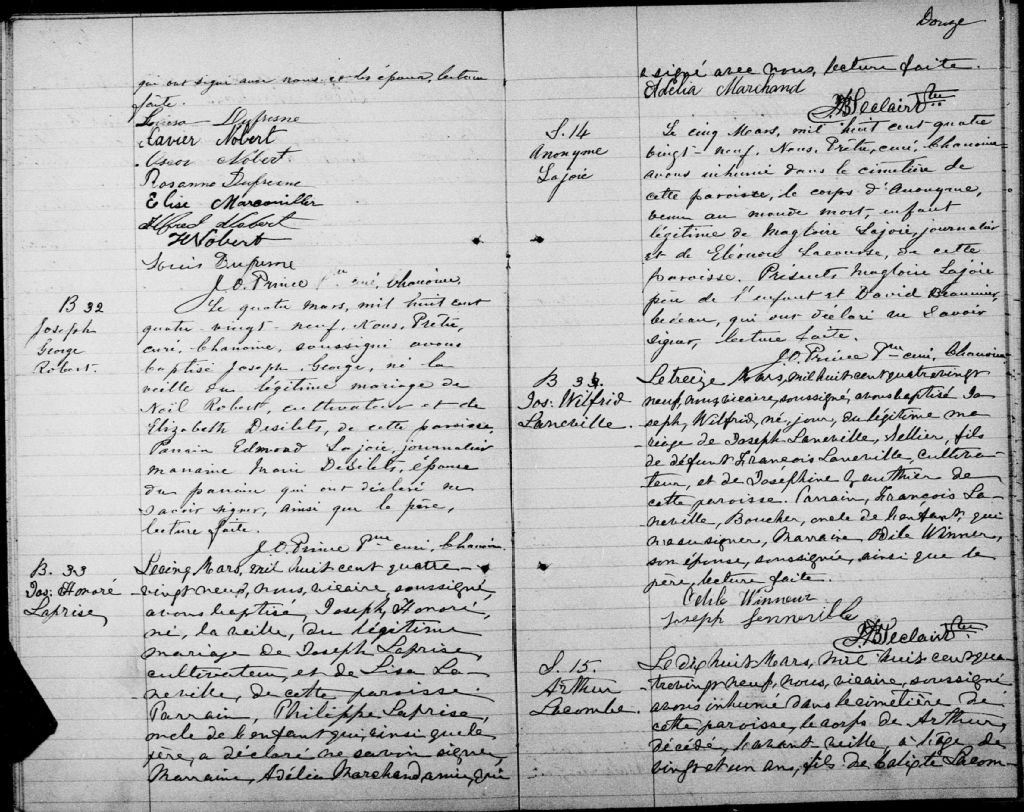 qui ont signé avec nous et les époux, lecture
faite.
Louisa Dufresne
Xavier Nobert
Oscar Nobert
Rosanna Dufresne
Elise Marcouiller
Alfred Nobert
H Nobert
Louis Dufresne
J. O. Prince Ptre curé, Chanoine
B 32
Joseph
George
Robert.
Le quatre mars, mil huit cent
quatre-vingt-neuf, Nous, Prêtre,
curé, Chanoine, soussigné avons
baptisé Joseph George, né la
veille du légitime mariage de
Noël Robert, cultivateur et de
Elizabeth Desilets, de cette paroisse
Parrain Edmond Lajoie, journalier
marraine Marie Desilets, épouse
du parrain qui ont déclaré ne
savoir signer, ainsi que le père,
lecture faite.
J. O. Prince Ptre curé, Chanoine.
B. 33
Jos: Honoré
Laprise
Le cinq Mars, mil huit cent quatre-
vingt neuf, nous, vicaire, soussigné,
avons baptisé, Joseph, Honoré,
né, la veille, du légitime
mariage de Joseph Laprise,
cultivateur, et de Lisa La-
neville, de cette paroisse.
Parrain, Philippe Laprise,
oncle de l'enfant qui, ainsi que le
père, a déclaré ne savoir signer,
Marraine, Adélia Marchand amie, qui
Douze
a signé avec nous, lecture faite.
Adélia Marchand
JB Leclair Ptre
S. 14
Anonyme
Lajoie
Le cinq Mars, mil huit cent quatre
vingt-neuf, Nous, Prêtre, curé, Chanoine
avons inhumé dans le cimetière de
cette paroisse, le corps d'Anonyme,
venu au monde mort, enfant
légitime de Magloire Lajoie, journalier
et de Eléonore Lacourse, de cette
paroisse. Présents, Magloire Lajoie
père de l'enfant et David
bedeau, qui ont déclaré ne savoir
signer, lecture faite.
J. O. Prince Ptre curé, Chanoine
B 34.
Jos: Wilfrid
Laneville.
Le treize Mars, mil huit cent quatre vingt
neuf, nous, vicaire, soussigné, avons baptisé Jo-
seph, Wilfrid, né, ce jour, du légitime ma-
riage de Joseph Laneville, Sellier, fils
de défunt François Laneville, cultiva-
teur, et de Joséphine Gauthier de
cette paroisse. Parrain, François La-
neville, Boucher, oncle de l'enfant, qui
n'a su signer, Marraine Odile Winner,
son épouse, soussignée, ainsi que le
père, lecture faite.
Odile Winneur
Joseph Lenneville
JB Leclair Ptre
S. 15.
Arthur
Lacombe.
Le dix huit Mars, mil huit cent qua-
tre vingt neuf, nous, vicaire, soussigné
avons inhumé dans le cimetière de
cette paroisse, le corps de Arthur,
décédé, l'avant veille, à l'âge de
vingt et un ans, fils de Calixte Lacom-